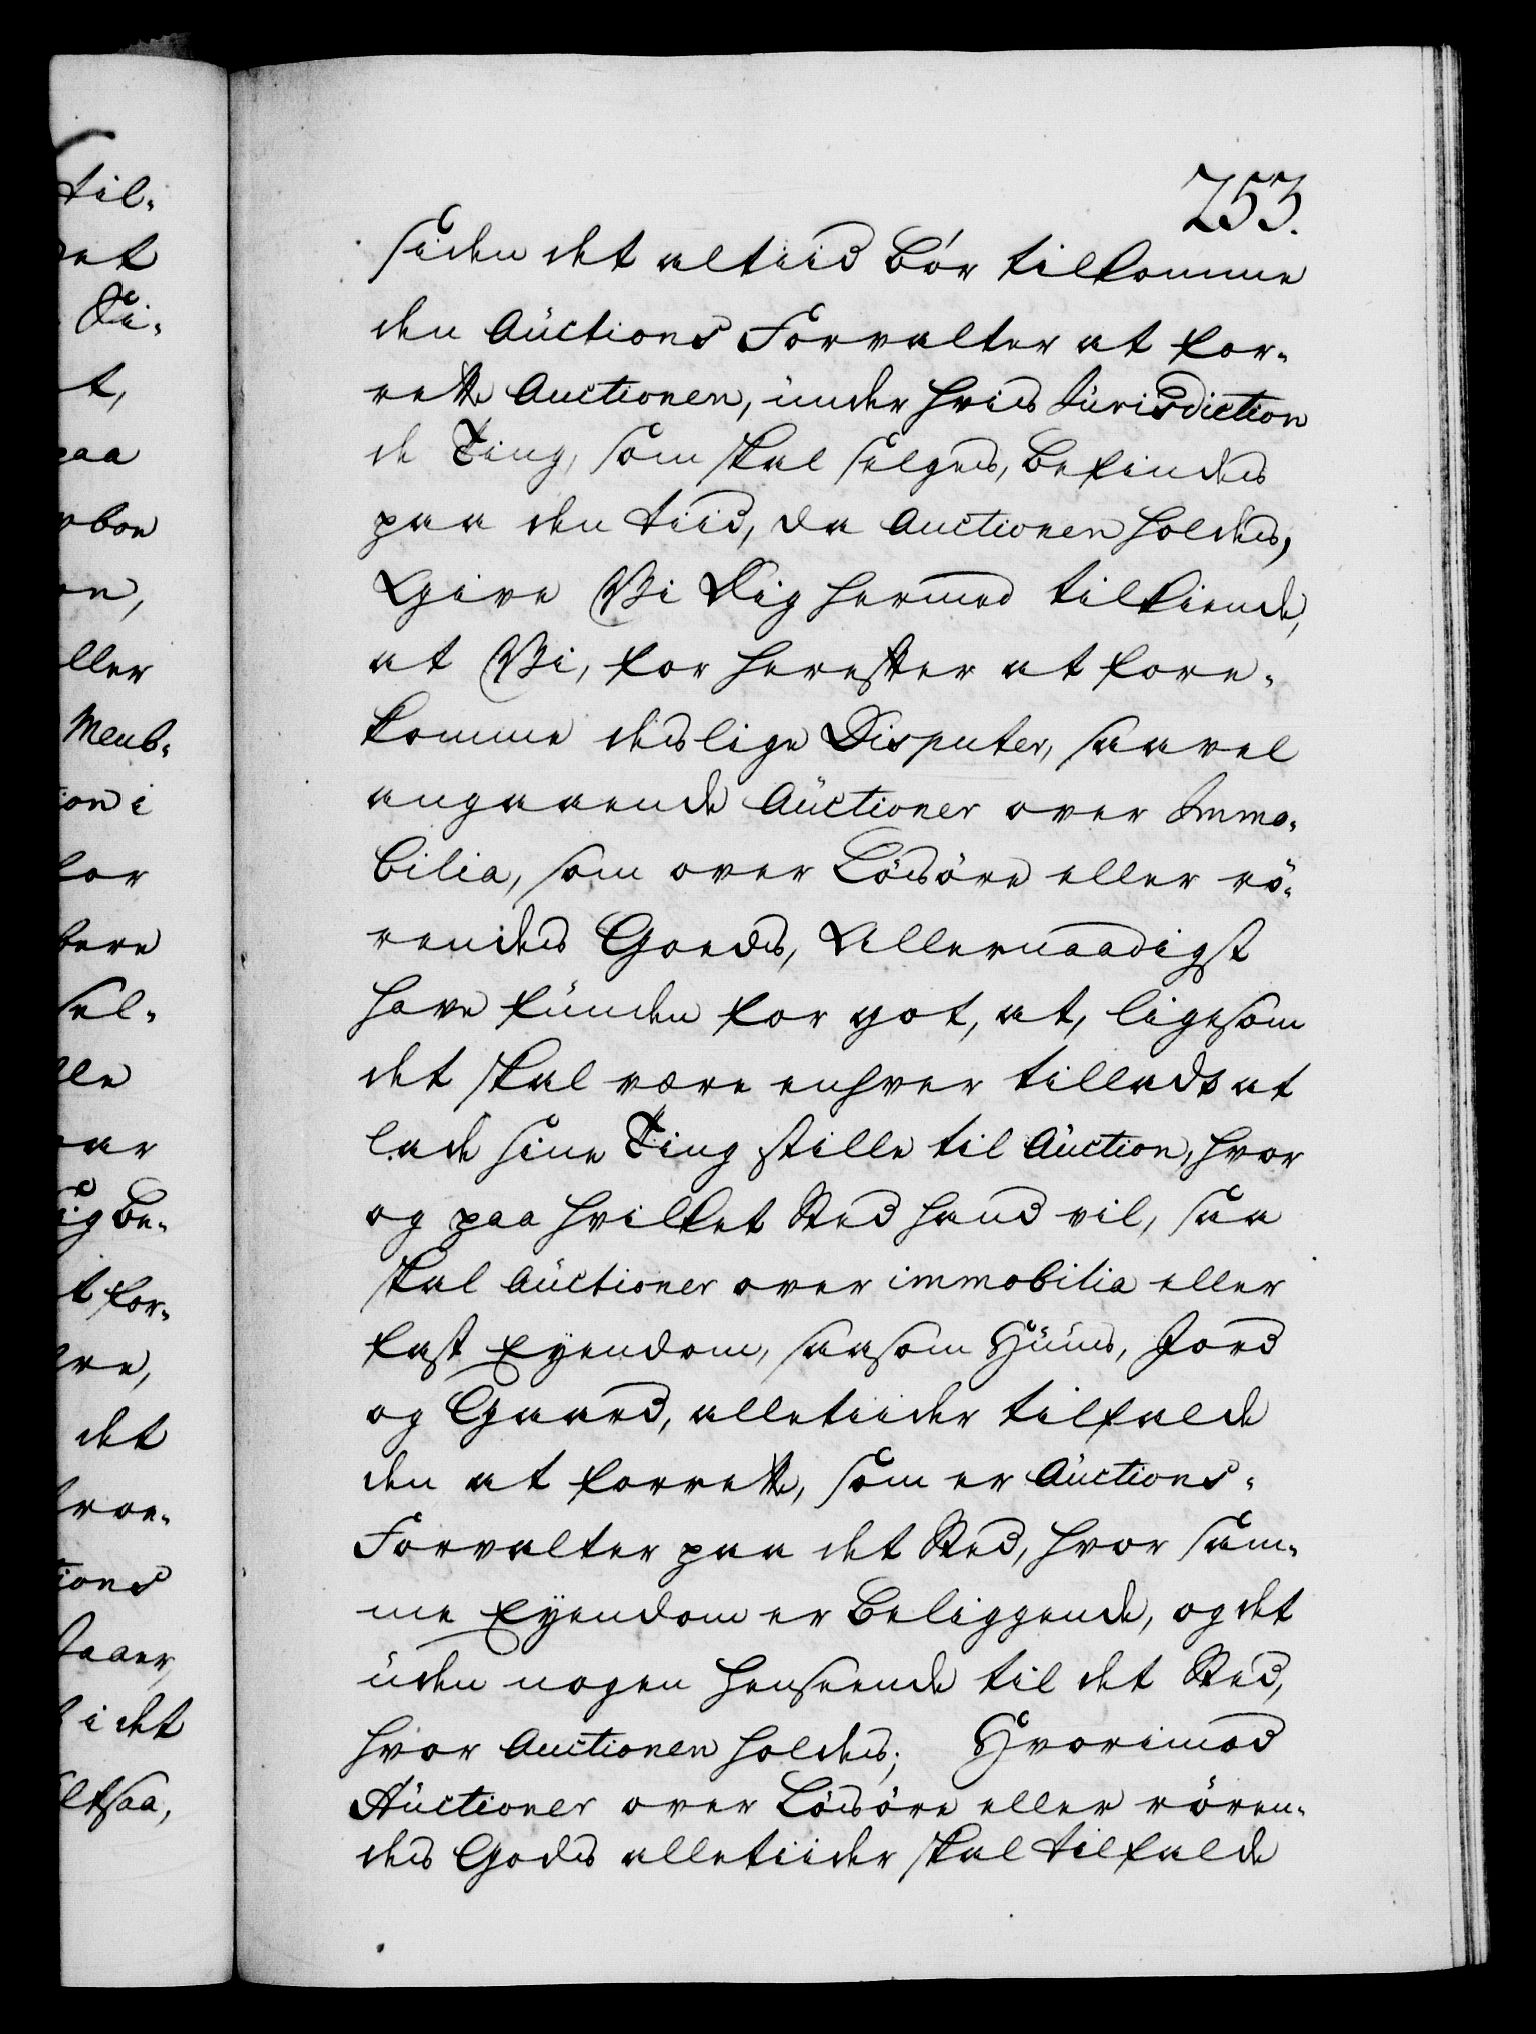 253.
siden det altiid bör tilkomme
den Auctions Forvalter at for-
rette Auctionen, under hvis Jurisdiction
de Ting, som skal selges, befindes
paa den tiid, da Auctionen holdes,
Give Vi Dig hermed tilkiende,
at Vi, for herefter at fore-
komme deslige Disputer, saavel
angaaende Auctioner over Immo-
bilia, som over Lösöre eller rö-
rendes Goeds, Allernaadigst
have funden for got, at, ligesom
det skal være enhver tilladt at
lade sine Ting stille til Auction, hvor
og paa hvilket Sted hand vil, saa
skal Auctioner over immobilia eller
fast Eyendom, saasom Huus, Jord
og Gaard, alletiider tilfalde
den at forrette, som er Auctions-
Forvalter paa det Sted, hvor sam-
me Eyendom er beliggende, og det
uden nogen henseende til det Sted,
hvor Auctionen holdes; Hvorimod
Auctioner over Lösöre eller rören-
des Godes alletiider skal tilfalde
til-
det
t,
paa
ller
Meub-
for
sel-
be-
t for-
det
tions
i det
altsaa,